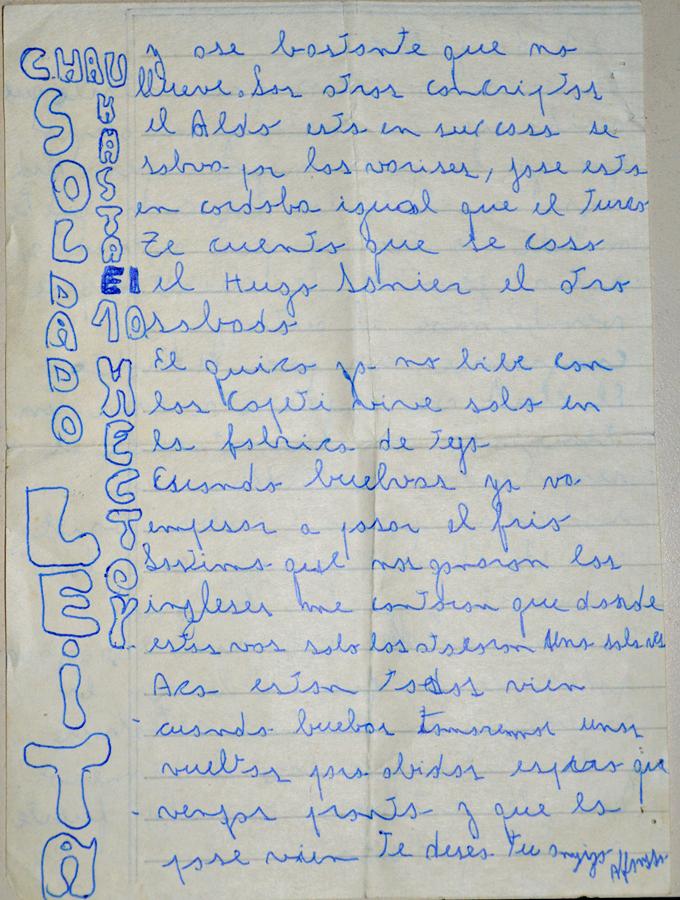 CHAU
SOLDADO
LEITA
HASTA EL
10
HECTOR
y ase bastante que no
llueve. Los otros conscriptos
el Aldo esta en su casa se
salvo por las varises, jose esta
en cordoba igual que el Turco
Te cuento que se caso
el Hugo Sanier el otro
sabado
El quico ya no bibe con
los Cajeti vive solo en
la fabrica de Teja
Cuando buelvas ya va
empesar a pasar el frio
Lastima que nos ganaron los
ingleses me contaron que donde
estas vos solo los atacaron Una sola ves
Aca estan todos vien
cuando buebas tomaremos unas
vueltas para olvidar espero que
vengas pronto y que la
pase vien Te desea Tu amigo Alfonso